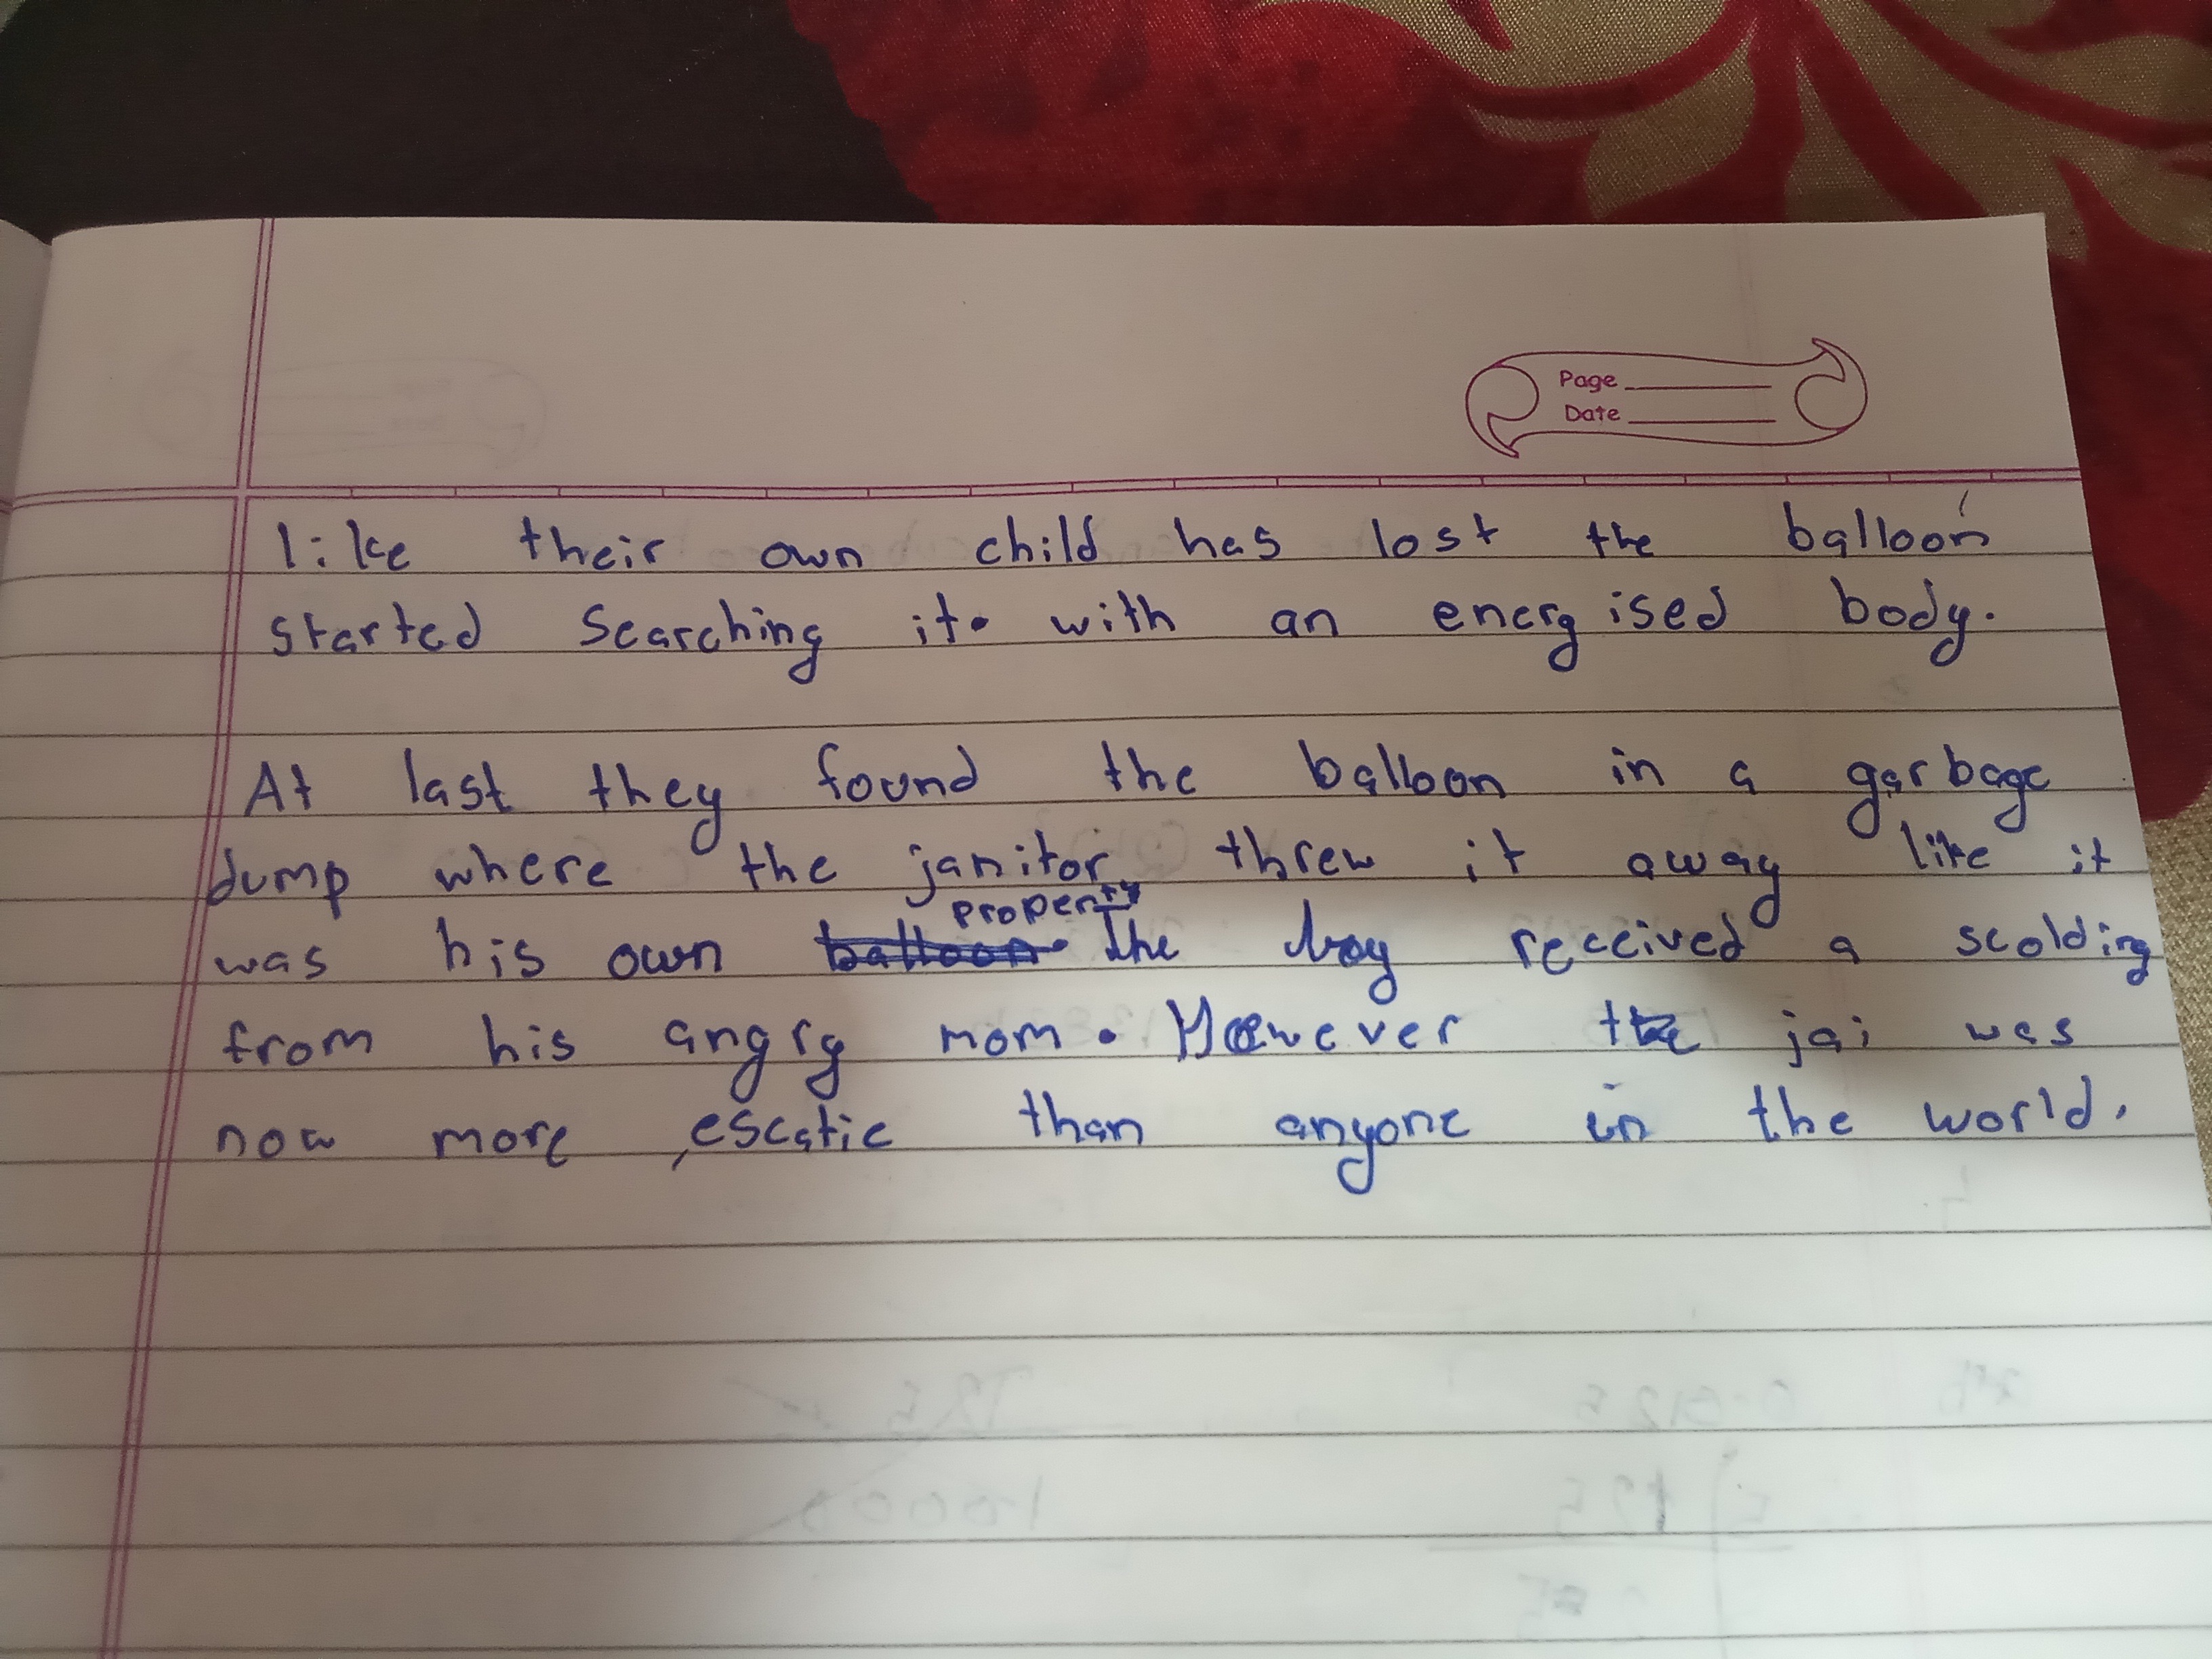 Page
Date
like their own child has lost the balloon
started searching it. with an energised body.
At last they found the balloon in a garbage
dump where the janitor threw it away like it
property
was his own balloon. The boy received a scolding
from his angry mom. However the jai was
now more escatic than anyone in the world.